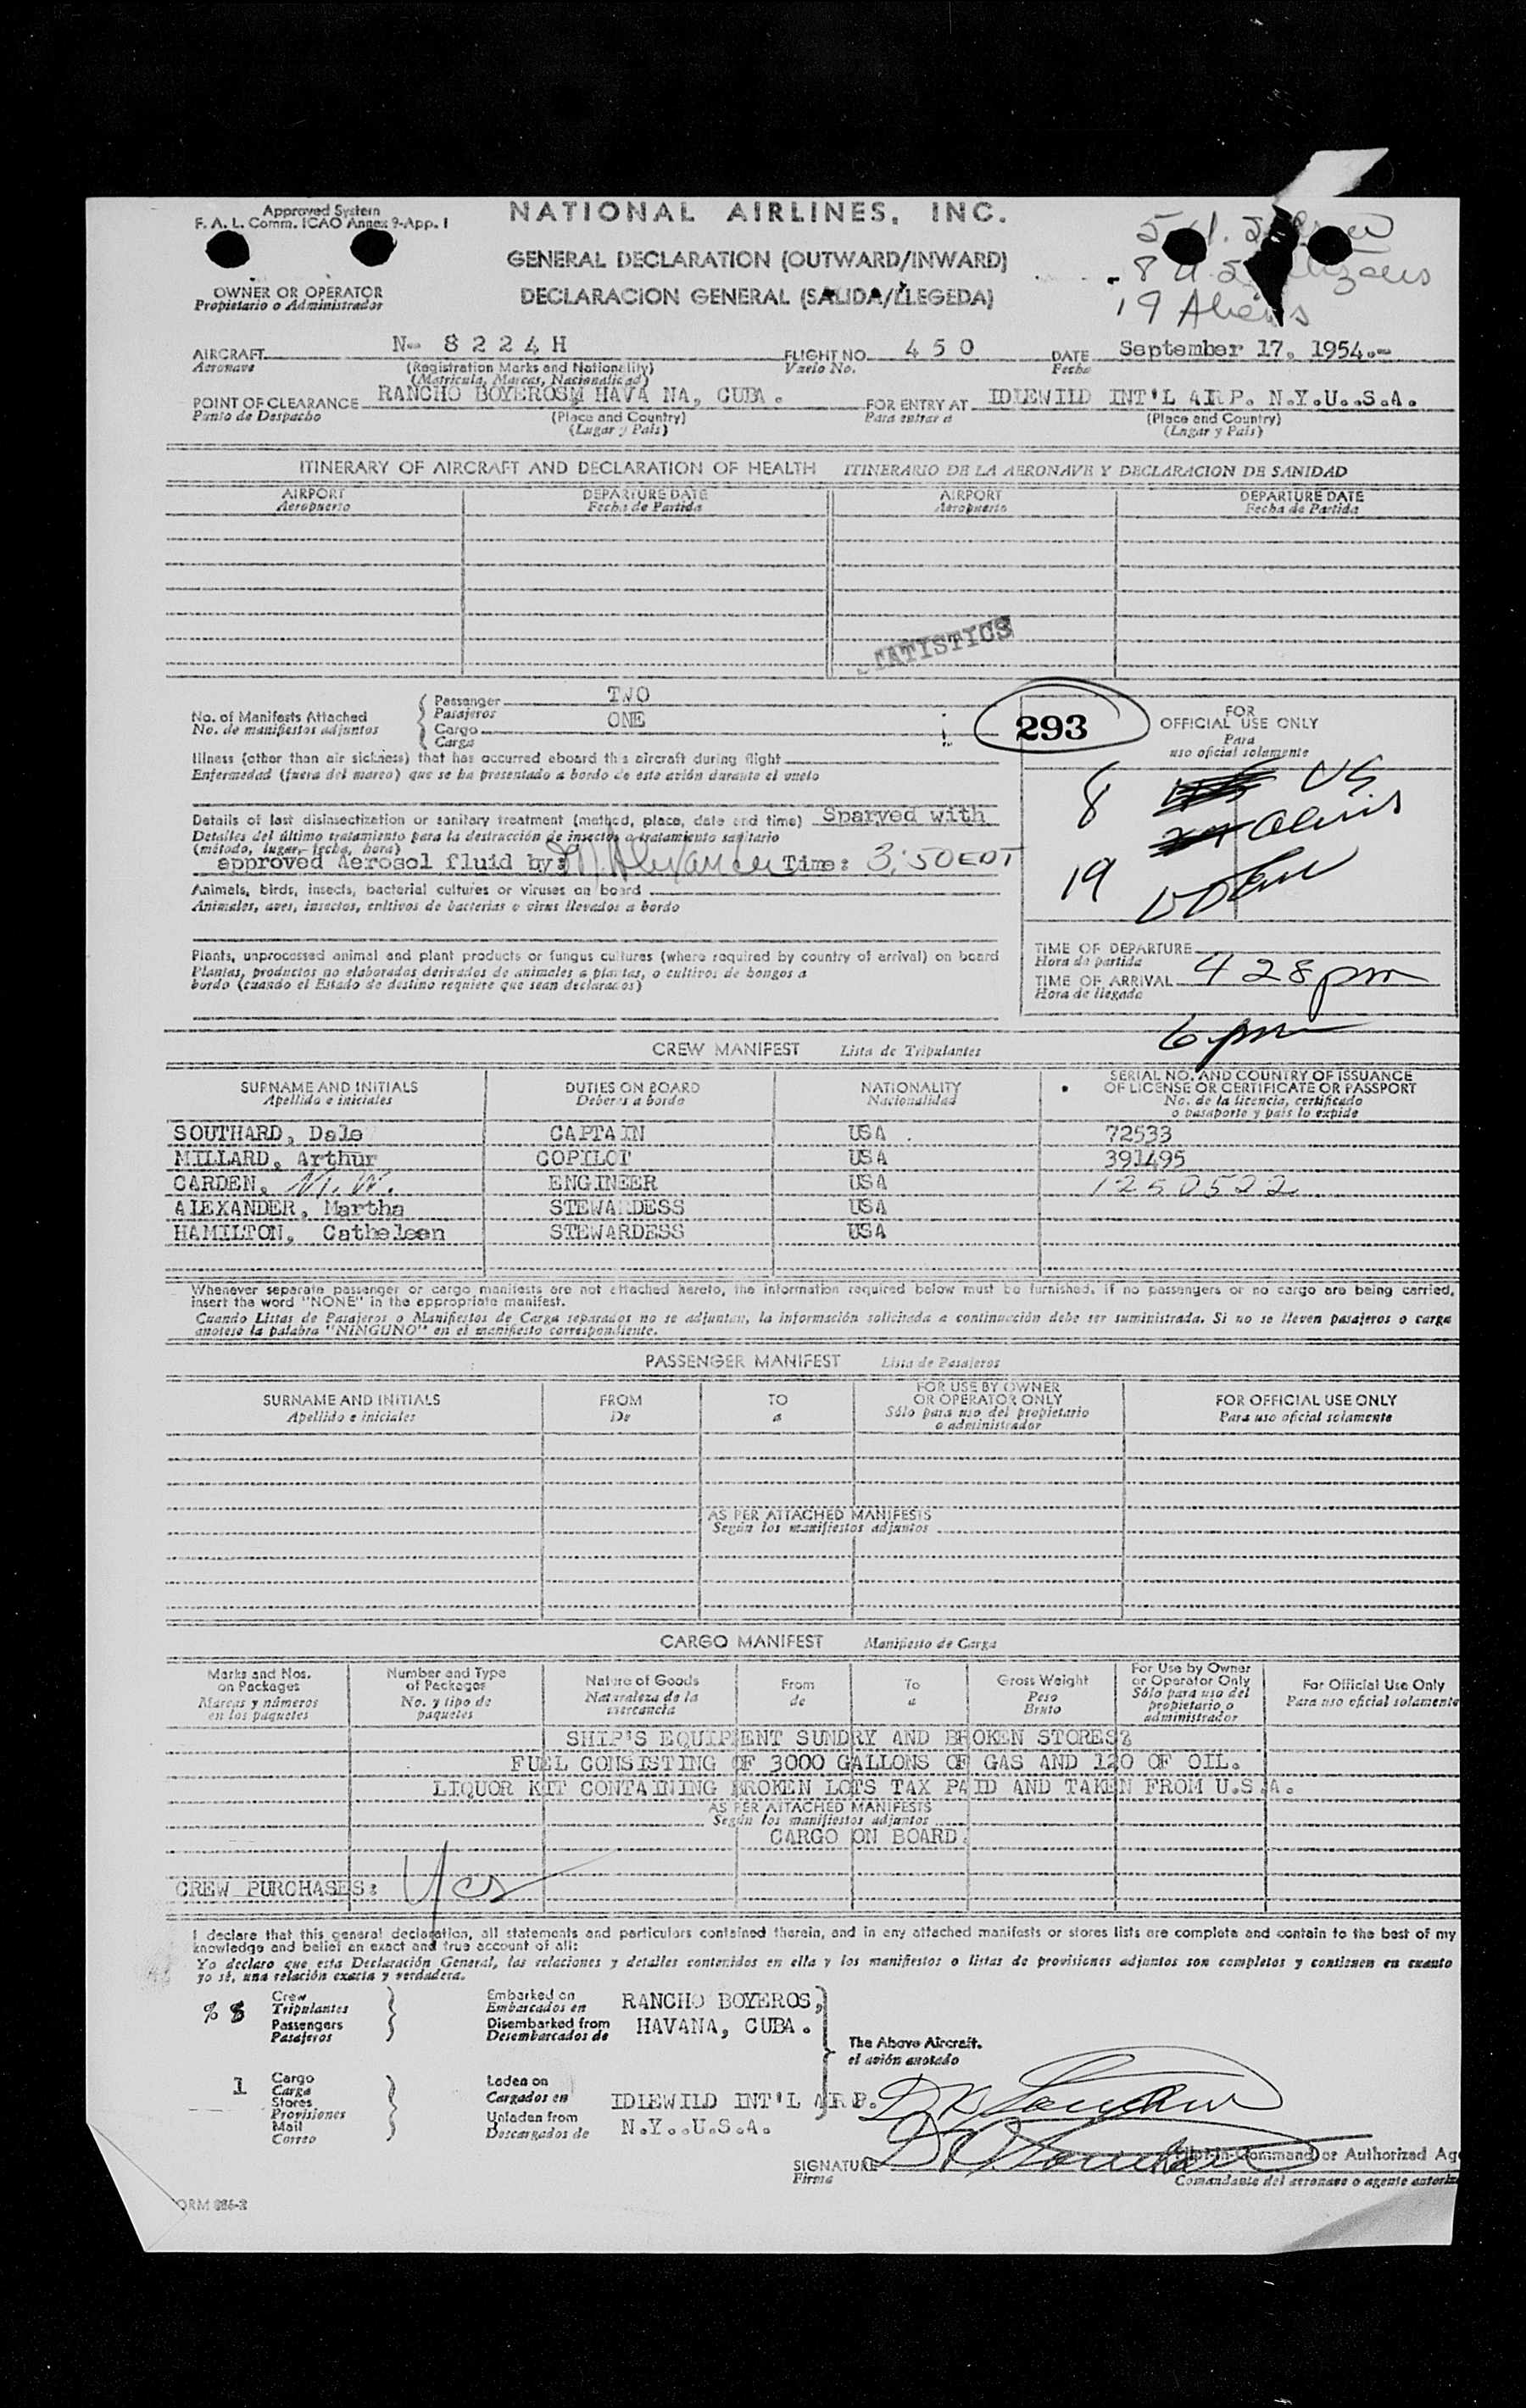 Approved System
F. A. L. Comm. ICAO Annex 9-App. I
NATIONAL AIRLINES, INC.
GENERAL DECLARATION (OUTWARD/INWARD)
DECLARACION GENERAL (SALIDA/LLEGEDA)
OWNER OR OPERATOR
Propietario o Administrador
8 U.S. Citizens
19 Aliens
AIRCRAFT N- 8 2 2 4 H FLIGHT NO. 4 5 0 DATE September 17, 1954.-
Aeronave (Registration Marks and Nationality) Vuelo No. Fecha
(Matricula, Marcas, Nacionalidad)
POINT OF CLEARANCE RANCHO BOYEROSM HAVA NA, CUBA. FOR ENTRY AT IDLEWILD INT'L AIRP. N.Y.U..S.A.
Punto de Despacho (Place and Country) Para entrar a (Place and Country)
(Lugar y Pais) (Lugar y Pais)
ITINERARY OF AIRCRAFT AND DECLARATION OF HEALTH ITINERARIO DE LA AERONAVE Y DECLARACION DE SANIDAD
AIRPORT DEPARTURE DATE AIRPORT DEPARTURE DATE
Aeropuerto Fecha de Partida Aeropuerto Fecha de Partida
STATISTICS
No. of Manifests Attached
No. de manifiestos adjuntos
Passenger TWO
Pasajeros
Cargo ONE
Carga
293
FOR
OFFICIAL USE ONLY
Para
uso oficial solamente
8 US
Aliens
19
Illness (other than air sickness) that has occurred aboard this aircraft during flight
Enfermedad (fuera del mareo) que se ha presentado a bordo de este avión durante el vuelo
Details of last disinsectization or sanitary treatment (method, place, date and time) Sparyed with
Detalles del último tratamiento para la destrucción de insectos o tratamiento sanitario
(método, lugar, fecha, hora)
approved Aerosol fluid by: M. Alexander Time: 3:50 EDT
Animals, birds, insects, bacterial cultures or viruses on board
Animales, aves, insectos, cultivos de bacterias o virus llevados a bordo
Plants, unprocessed animal and plant products or fungus cultures (where required by country of arrival) on board
Plantas, productos no elaborados derivados de animales a plantas, o cultivos de hongos a
bordo (cuando el Estado de destino requiere que sean declarados)
TIME OF DEPARTURE
Hora de partida
TIME OF ARRIVAL 4 28 pm
Hora de llegada
6 pm
CREW MANIFEST Lista de Tripulantes
SURNAME AND INITIALS DUTIES ON BOARD NATIONALITY SERIAL NO. AND COUNTRY OF ISSUANCE
OF LICENSE OR CERTIFICATE OR PASSPORT
Apellido e iniciales Deberes a bordo Nacionalidad No. de la licencia, certificado
o pasaporte y pais lo expide
SOUTHARD, Dale CAPTAIN USA 72533
MILLARD, Arthur COPILOT USA 391495
CARDEN, M. W. ENGINEER USA 1250522
ALEXANDER, Martha STEWARDESS USA
HAMILTON, Catheleen STEWARDESS USA
Whenever separate passenger or cargo manifests are not attached hereto, the information required below must be furnished. If no passengers or no cargo are being carried,
insert the word "NONE" in the appropriate manifest.
Cuando Listas de Pasajeros o Manifiestos de Carga separados no se adjuntan, la información solicitada a continuación debe ser suministrada. Si no se lleven pasajeros o carga
anotese la palabra "NINGUNO" en el manifiesto correspondiente.
PASSENGER MANIFEST Lista de Pasajeros
SURNAME AND INITIALS FROM TO FOR USE BY OWNER
OR OPERATOR ONLY FOR OFFICIAL USE ONLY
Apellido e iniciales De a Sólo para uso del propietario
o administrador Para uso oficial solamente
AS PER ATTACHED MANIFESTS
Según los manifiestos adjuntos
CARGO MANIFEST Manifiesto de Carga
Marks and Nos.
on Packages
Marcas y números
en los paquetes
Number and Type
of Packages
No. y tipo de
paquetes
Nature of Goods
Naturaleza de la
mercancia
From
de
To
a
Gross Weight
Peso
Bruto
For Use by Owner
or Operator Only
Sólo para uso del
propietario o
administrador
For Official Use Only
Para uso oficial solamente
SHIP'S EQUIPMENT SUNDRY AND BROKEN STORES?
FUEL CONSISTING OF 3000 GALLONS OF GAS AND 120 OF OIL.
LIQUOR KIT CONTAINING BROKEN LOTS TAX PAID AND TAKEN FROM U.S.A.
AS PER ATTACHED MANIFESTS
Según los manifiestos adjuntos
CARGO ON BOARD.
CREW PURCHASES: Yes
I declare that this general declaration, all statements and particulars contained therein, and in any attached manifests or stores lists are complete and contain to the best of my
knowledge and belief an exact and true account of all:
Yo declaro que esta Declaración General, las relaciones y detalles contenidos en ella y los manifiestos o listas de provisiones adjuntos son completos y contienen en cuanto
yo sé, una relación exacta y verdadera.
Crew
Tripulantes
Passengers
Pasajeros
Embarked on
Embarcados en
Disembarked from
Desembarcados de
RANCHO BOYEROS,
HAVANA, CUBA.
The Above Aircraft.
el avión anotado
1
Cargo
Carga
Stores
Provisiones
Mail
Correo
Laden on
Cargados en
Unladen from
Descargados de
IDLEWILD INT'L AIRP.
N.Y..U.S.A.
SIGNATURE
Firma
Pilot-in-Command or Authorized Ag
Comandante del aeronave o agente autoriz
ORM 086-2